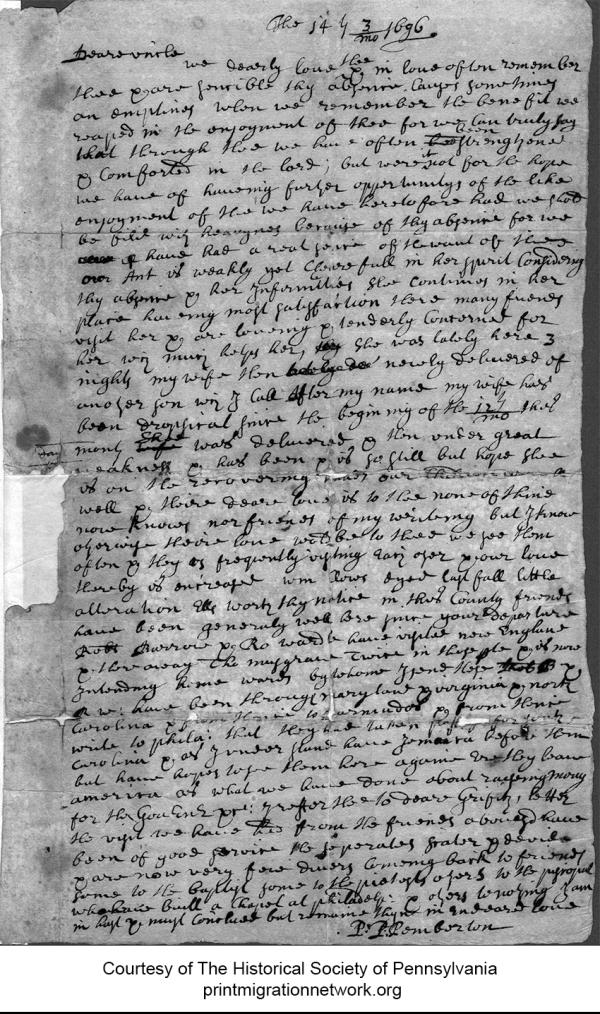 The 14 3/mo 1696.
Deare uncle
we dearly love thee & in love often remember
thee & are sensible thy absence causes sometimes
an emptines when we remember the benefit we
reaped in the enjoyment of thee for we can truly say
that through thee we have often been strengthened
& comforted in the lord; but were it not for the hope
we have of haveing further oppertunitys of the like
enjoyment of thee we have heretofore had we should
be fild with heavynes because of thy absence for we
have had a real sence of the want of thee
our Ant is weakly yet cheerefull in her spirit Considering
thy absence & her Infirmities she continues in her
place haveing most satisfaction there many friends
visit her & are loveing & tenderly Concerned for
her wch much helps her, she was lately here 3
nights my wife then newly delivered of
another son wch I call after my name my wife has
been dropsical since the begining of the 12/mo that
month she was delivered & then under great
day
weakness & has been & is so still but hope shee
is on the recovering
well & theire deare love is to thee none of thine
now knows nor friends of my writeing but I know
otherwise theire love would be to thee we see them
often & they us frequently visiting each other & our love
thereby is increased Wm Rows dyed last fall little
alteration Els worth thy notice in this County friends
have been generaly well here since your departure
Robt Barrow & Ro wardle have visited new England
& thereaway Tho musgrave twice in those & is now
Intending home wards by whome I send these
have been through maryland & virginia & north
Carolina & from thence to bermudos & from thence
write to phila: that they had taken for south
Carolina & as I understand have Jemaica before them
but have hopes to see them here againe ere they leave
america as what we have done about raiseing mony
for the Govenr &c: I reffer thee to deare Griffith, letter
the visit we have had from the friends aboue have
been of good service the seperates scater & devide
& are now very few divers comeing back to friends
some to the baptist some to the pietests others to the
who have built a Chapel at philadelp: & others to nothing I am
in hast & must conclude but remaine thyne in Endeared love
P. Pemberton
Courtesy of The Historical Society of Pennsylvania
printmigrationnetwork.org